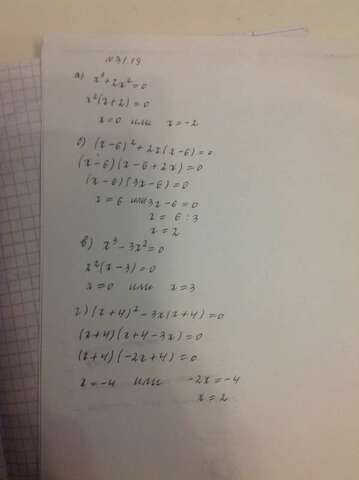 №31.19
а) x³+2x²=0
x²(x+2)=0
x=0 или x=-2
б) (x-6)²+2x(x-6)=0
(x-6)(x-6+2x)=0
(x-6)(3x-6)=0
x=6 или 3x-6=0
x=6:3
x=2
в) x³-3x²=0
x²(x-3)=0
x=0 или x=3
г) (x+4)²-3x(x+4)=0
(x+4)(x+4-3x)=0
(x+4)(-2x+4)=0
x=-4 или -2x=-4
x=2